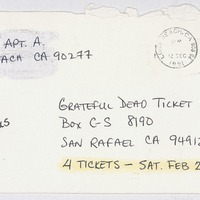 APT. A.
ACA CA 90277
BEACH, CA
DEC
1991
GRATEFUL DEAD TICKET
BOX C-S 8190
SAN RAFAEL CA 94912
4 TICKETS – SAT. FEB 2